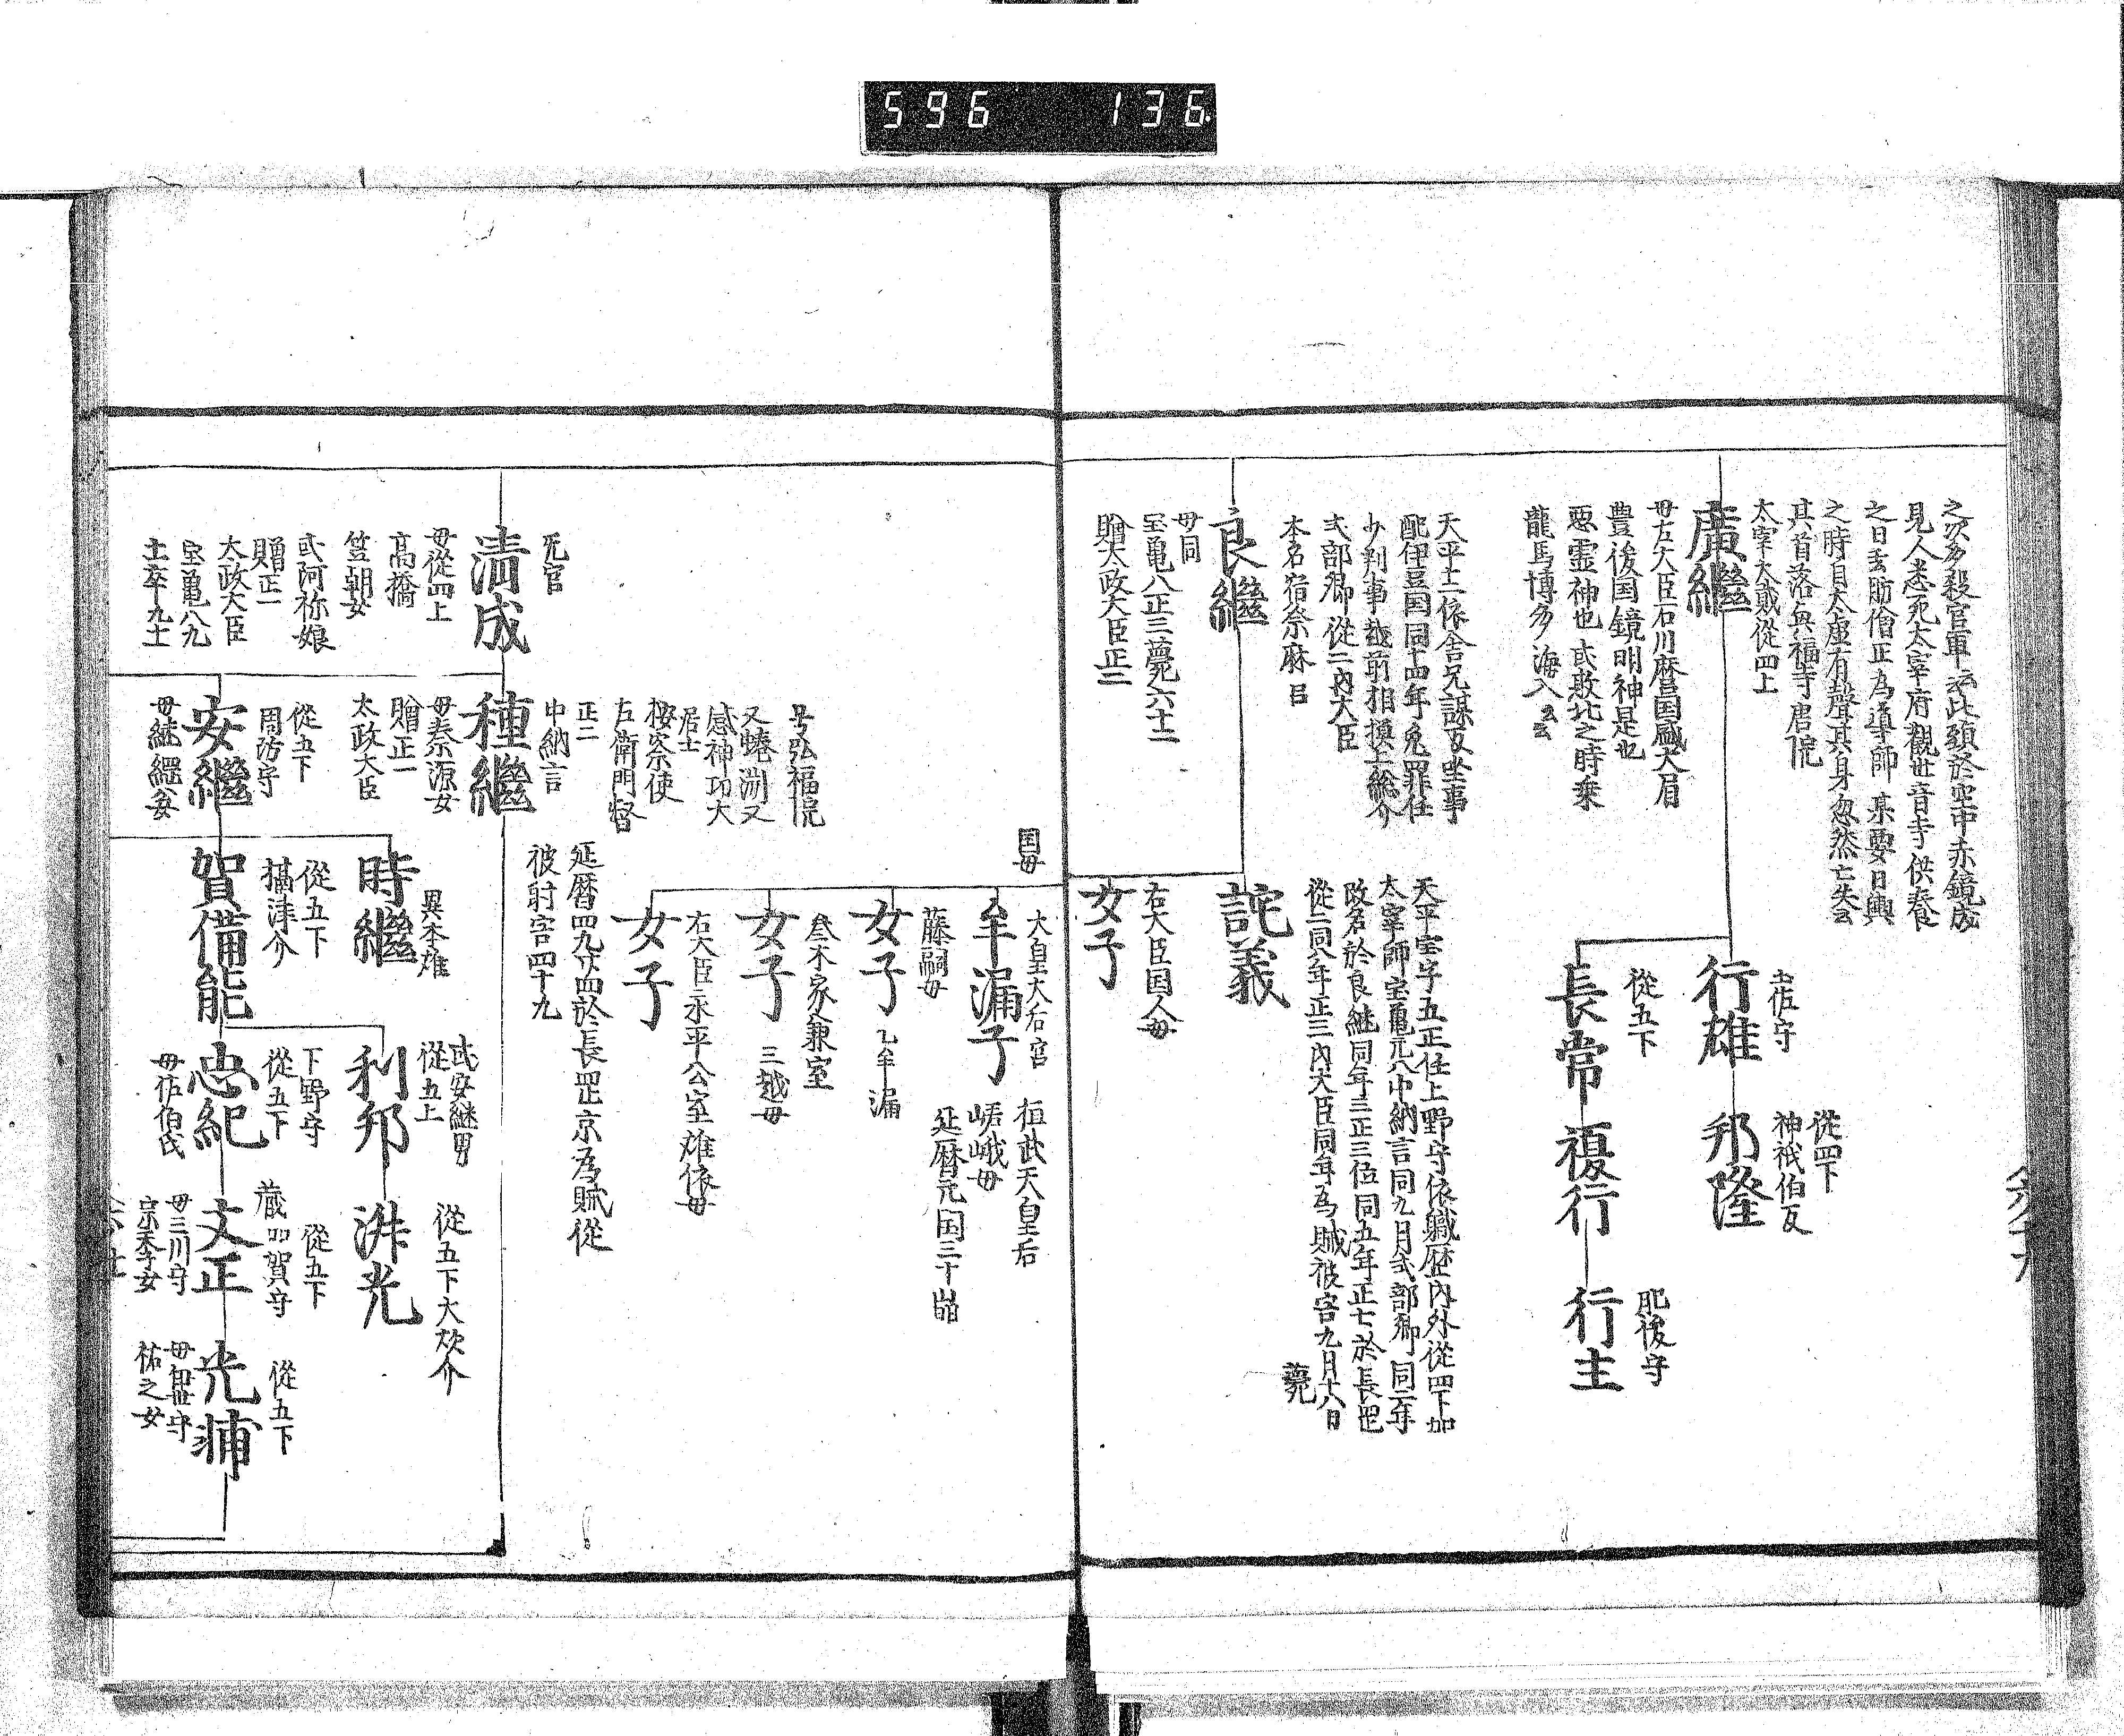 596 136
之次多殺官軍云此頭於空中赤鏡成
見人悉死太宰府觀世音寺供養
之日玄昉僧正為導師 某要日輿
之時自太虚有聲其身忽然亡失云
其首落興福寺唐院
太宰大貳從四上
廣繼
毋左大臣石川麿国盛大眉
豊後国鏡明神是也
惡霊神也 或敗北之時乗
龍馬博多海入云云
土佐守
行雄
從四下
神祇伯
邦隆
從五下
長常
復行
肥後守
行主
天平十二依舎兄謀反坐事
配伊豆国同十四年免罪任
少判事越前相摸上総介
式部卿從二内大臣
本名宿奈麻呂
良繼
毋同
宝亀八正三薨六十二
贈太政大臣正二
天平宝字五正任上野守依職歴内外從四下加
太宰師宝亀元八中納言同九月式部卿同二年
改名於良継同年三正三位同五年正七於長罡
從二同八年正三内大臣同年為賊被害九月十八日
薨
詫義
右大臣国人毋
女子
国毋
大皇大后宮
牟漏子
桓武天皇后
嵯峨毋
延暦元国三十崩
藤嗣毋
女子
乙牟漏
叅木家兼室
女子
三越毋
右大臣永平公室雄依毋
女子
号弘福院
又蜷渕又
感神功大
居士
按察使
左衛門督
正二
中納言
種繼
毋秦源女
贈正一
太政大臣
延暦四九廿四於長罡京為賊從
被射害四十九
无官
清成
毋從四上
高橋
笠朝女
或阿祢娘
贈正一
太政大臣
宝亀八九
十卒九十
從五下
周防守
安繼
毋継繩妾
異本雄
時繼
從五下
攝津介
賀備能
或安継男
從五上
利邦
從五下大炊介
洪光
下野守
從五下
忠紀
毋佐伯氏
從五下
賀守
文正
毋三川守
宗天子女
從五下
光輔
毋伊世守
祐之女